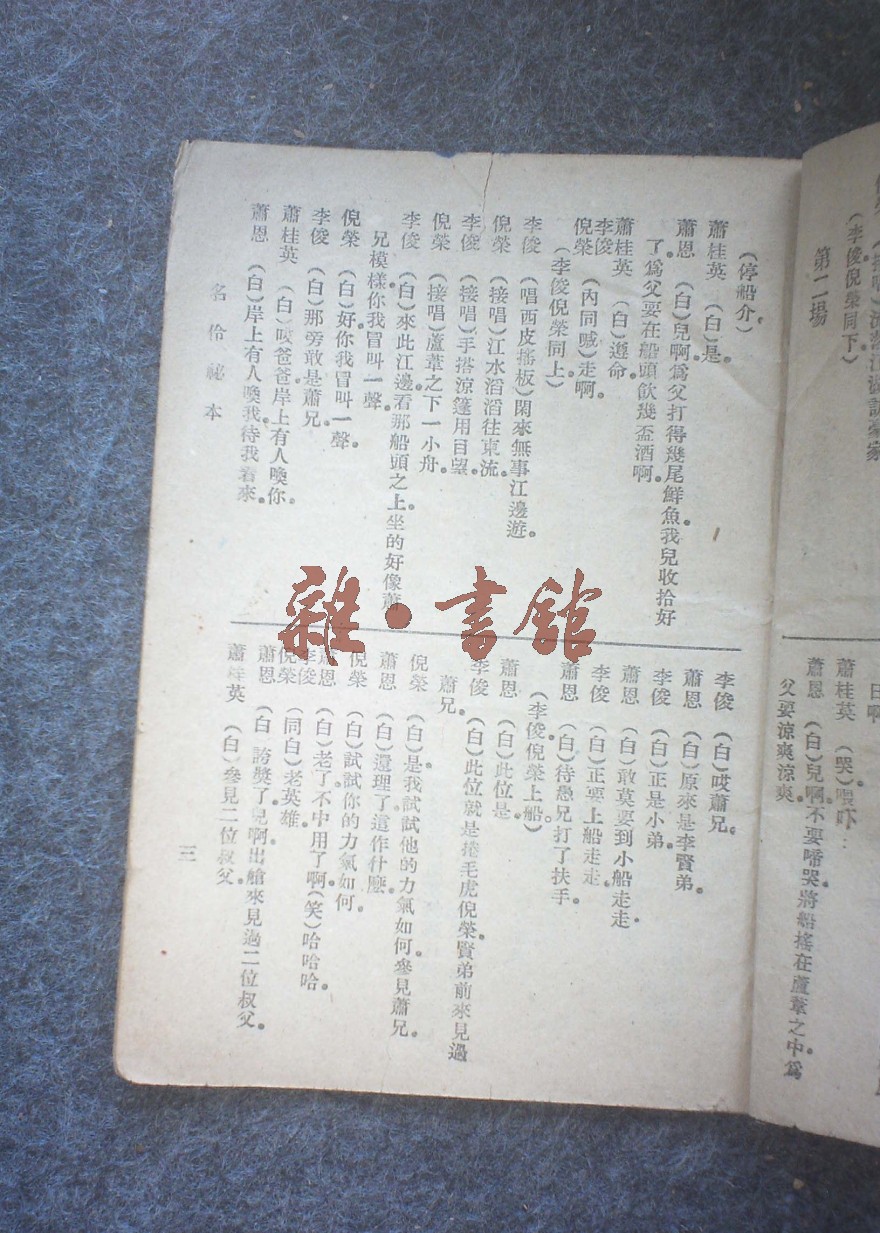 第二場
(李俊倪榮同下)
蕭桂英 (哭)喂吓…
蕭恩 (白)兒啊不要啼哭將船搖在蘆葦之中爲
父要涼爽涼爽
(停船介)
蕭桂英 (白)是。
蕭恩 (白)兒啊爲父打得幾尾鮮魚我兒收拾好
了。爲父要在船頭飲幾盃酒啊。
蕭桂英 (白)遵命。
李俊
倪榮 (內同喊)走啊。
(李俊倪榮同上)
李俊 (唱西皮搖板)閑來無事江邊遊。
倪榮 (接唱)江水滔滔往東流。
李俊 (接唱)手搭涼篷用目望。
倪榮 (接唱)蘆葦之下一小舟。
李俊 (白)來此江邊。看那船頭之上坐的好像蕭
兄模樣。你我冒叫一聲。
倪榮 (白)好。你我冒叫一聲。
李俊 (白)那旁敢是蕭兄。
蕭桂英 (白)哎爸爸岸上有人喚你。
蕭恩 (白)岸上有人喚我。待我看來。
李俊 (白)哎蕭兄。
蕭恩 (白)原來是李賢弟。
李俊 (白)正是小弟。
蕭恩 (白)敢莫要到小船走走
李俊 (白)正要上船走走。
蕭恩 (白)待愚兄打了扶手。
(李俊倪榮上船)
蕭恩 (白)此位是。
李俊 (白)此位就是捲毛虎倪榮。賢弟前來見過
蕭兄。
倪榮 (白)是。我試試他的力氣如何。參見蕭兄。
蕭恩 (白)還理了。這作什麼。
倪榮 (白)試試你的力氣如何。
蕭恩 (白)老了。不中用了啊(笑)哈哈哈。
李俊
倪榮 (同白)老英雄。
蕭恩 (白 誇獎了。兒啊出艙來見過二位叔父。
蕭桂英 (白)參見二位叔父。
名伶祕本
三
雜·書館